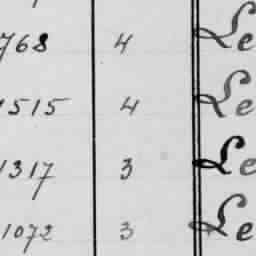 768 4 Le
1515 4 Le
1317 3 Le
1072 3 Le